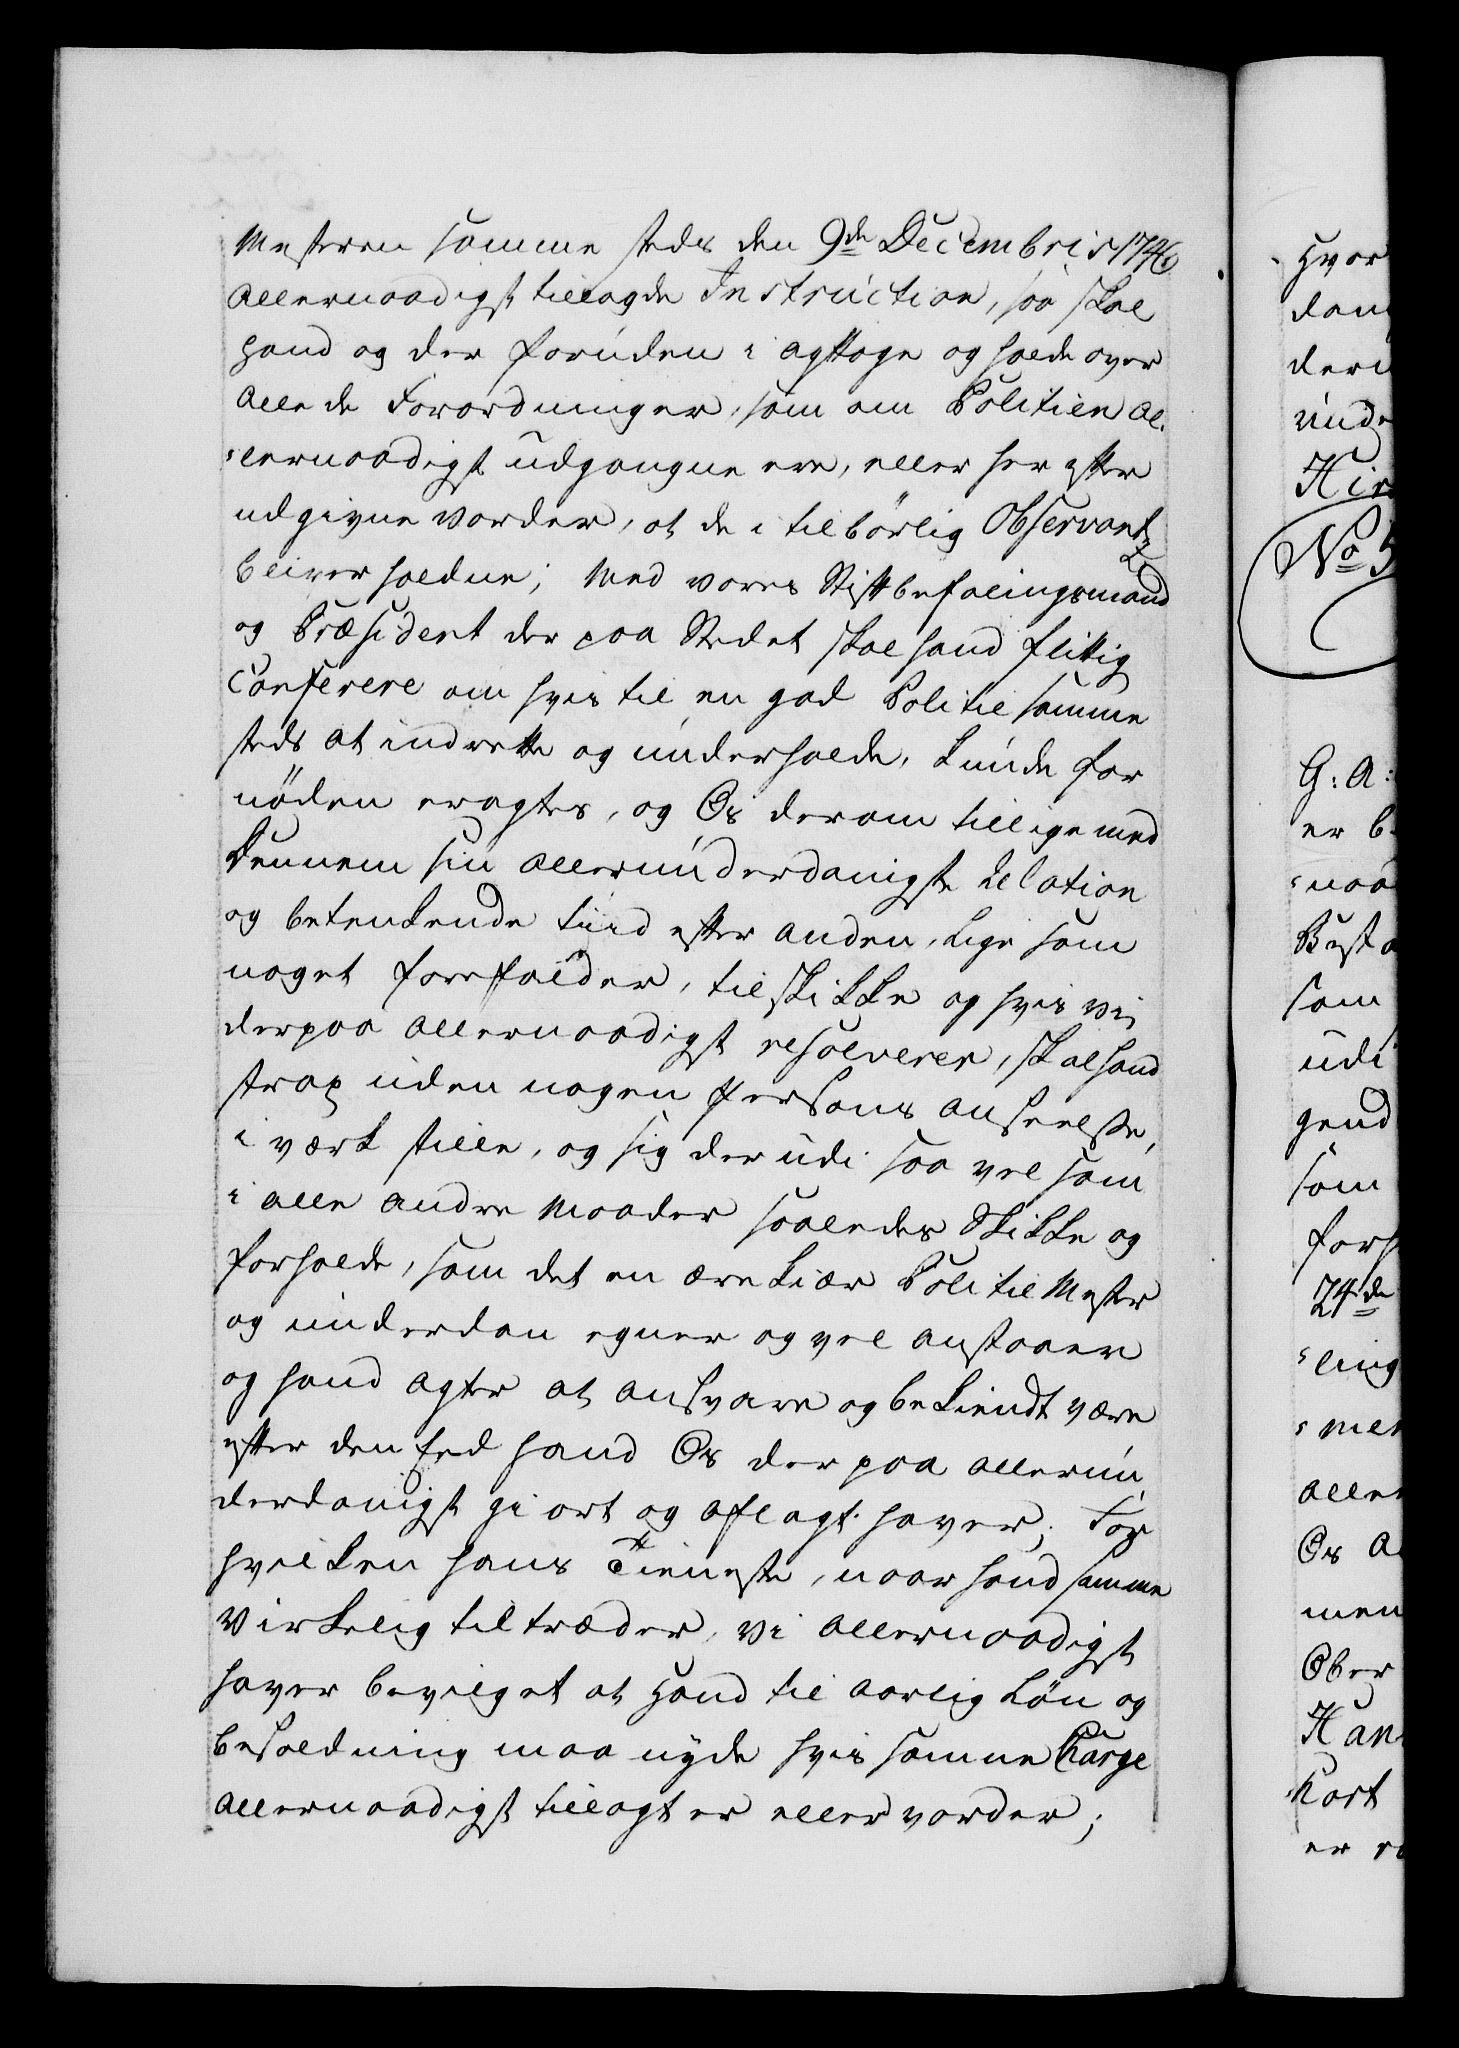 Mesteren samme steds den 9de Decembris 1746
allernaadigst tillagde Instruction, saa skal
hand og der foruden i agttage og holde over
alle de Forordninger, som om Politien al-
lernaadigst udgangne ere, eller her efter
udgivne vorder, at de i tilbørlig Observantz
bliver holdne; Med vores Stiftbefalingsmand
og Præsident der paa Stedet skal hand flittig
Conferere om hvis til en god Politie samme
steds at indrette og underholde, kunde for
nöden eragtes, og Os derom tillige med
dennem sin allerunderdanigste Relation
og betenkende tiid efter anden, lige som
noget forefalder, tilskikke og hvis vi
derpaa allernaadigst resolverer, skal hand
strax uden nogen Persons anseelse,
i værk stille, og sig der udi saa vel som
i alle andre Maader saaledes skikke og
forholde, som det en ærekiær Politie Mester
og underdan egner og vel anstaaer
og hand agter at ansvare og bekiendt være
efter den Eed hand Os der paa allerun
derdanigst giort og aflagt haver; For
hvilken hans Tieneste, naar hand samme
virkelig tiltræder, vi allernaadigst
haver bevilget at hand til aarlig Løn og
besoldning maa nyde hvis samme Charge
allernaadigst tillagt er eller vorder;
Hvor
dan
deri
unde
Kir
No 5
G: A:
er b
naa
Best
som
udi
gend
som
forh
24de
ling
mer
aller
Os A
men
Ober
Kan
kort
er